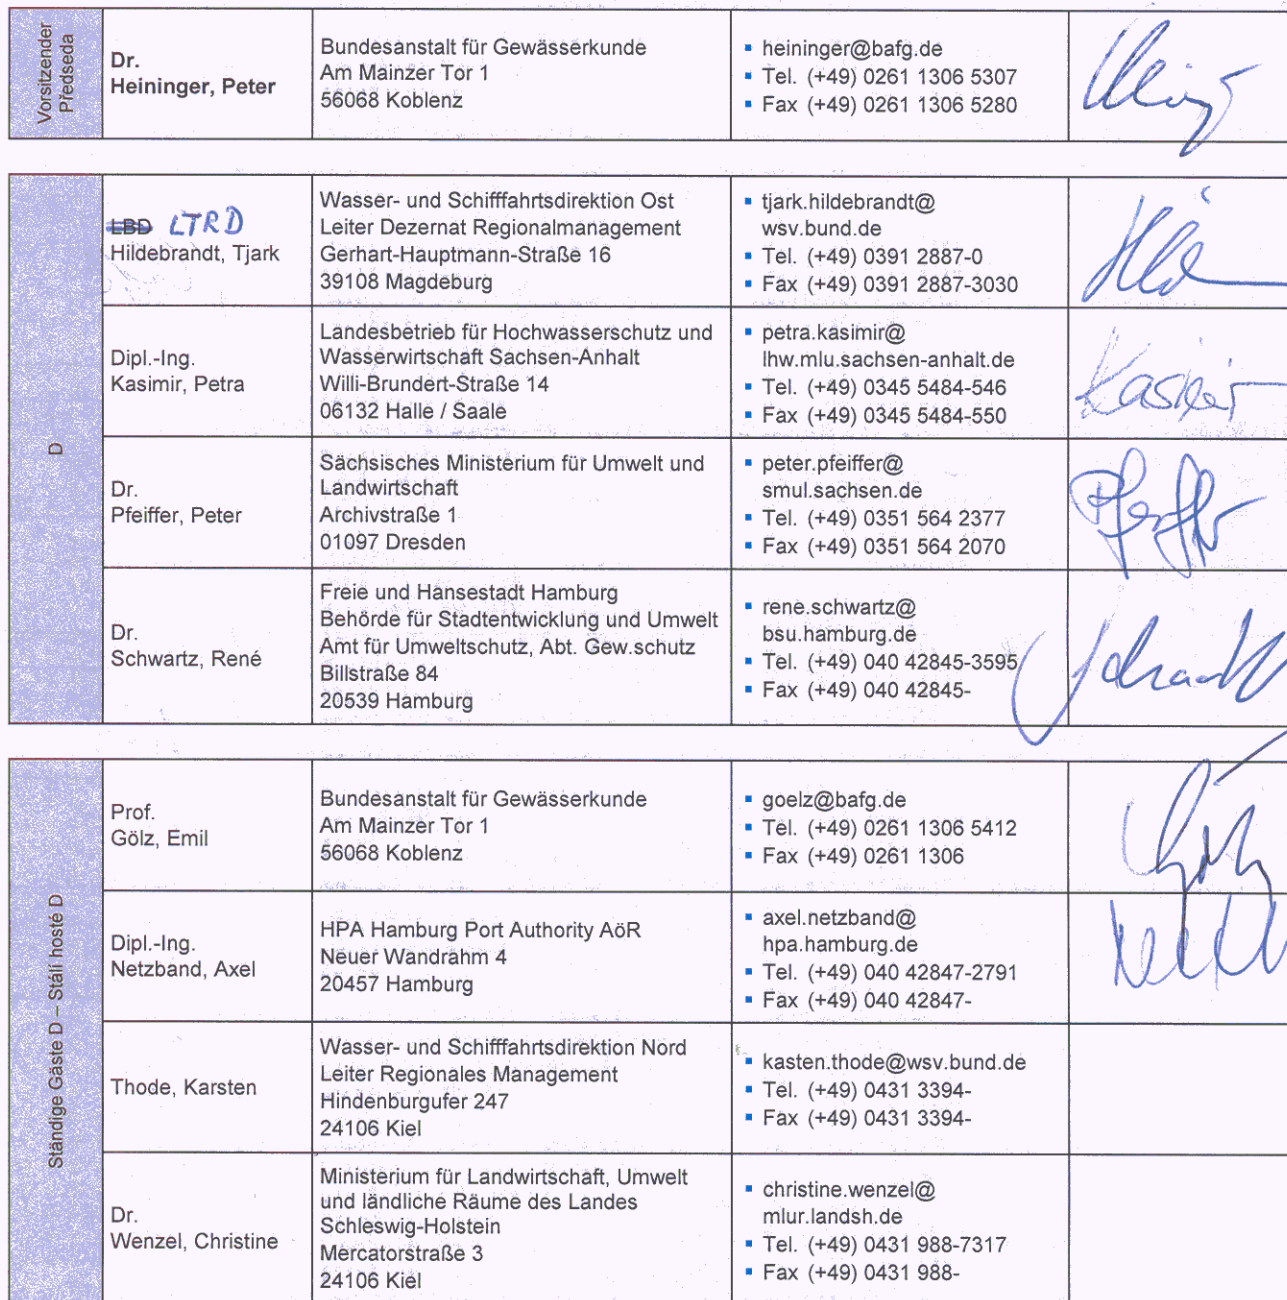 Vorsitzender
Předseda
Dr.
Heininger, Peter
Bundesanstalt für Gewässerkunde
Am Mainzer Tor 1
56068 Koblenz
▪ heininger@bafg.de
▪ Tel. (+49) 0261 1306 5307
▪ Fax (+49) 0261 1306 5280
D
LBD LTRD
Hildebrandt, Tjark
Wasser- und Schifffahrtsdirektion Ost
Leiter Dezernat Regionalmanagement
Gerhart-Hauptmann-Straße 16
39108 Magdeburg
▪ tjark.hildebrandt@
wsv.bund.de
▪ Tel. (+49) 0391 2887-0
▪ Fax (+49) 0391 2887-3030
Dipl.-Ing.
Kasimir, Petra
Landesbetrieb für Hochwasserschutz und
Wasserwirtschaft Sachsen-Anhalt
Willi-Brundert-Straße 14
06132 Halle / Saale
▪ petra.kasimir@
lhw.mlu.sachsen-anhalt.de
▪ Tel. (+49) 0345 5484-546
▪ Fax (+49) 0345 5484-550
Kasimir
Dr.
Pfeiffer, Peter
Sächsisches Ministerium für Umwelt und
Landwirtschaft
Archivstraße 1
01097 Dresden
▪ peter.pfeiffer@
smul.sachsen.de
▪ Tel. (+49) 0351 564 2377
▪ Fax (+49) 0351 564 2070
Pfeiffer
Dr.
Schwartz, René
Freie und Hansestadt Hamburg
Behörde für Stadtentwicklung und Umwelt
Amt für Umweltschutz, Abt. Gew.schutz
Billstraße 84
20539 Hamburg
▪ rene.schwartz@
bsu.hamburg.de
▪ Tel. (+49) 040 42845-3595
▪ Fax (+49) 040 42845-
Ständige Gäste D – Stálí hosté D
Prof.
Gölz, Emil
Bundesanstalt für Gewässerkunde
Am Mainzer Tor 1
56068 Koblenz
▪ goelz@bafg.de
▪ Tel. (+49) 0261 1306 5412
▪ Fax (+49) 0261 1306
Dipl.-Ing.
Netzband, Axel
HPA Hamburg Port Authority AöR
Neuer Wandrahm 4
20457 Hamburg
▪ axel.netzband@
hpa.hamburg.de
▪ Tel. (+49) 040 42847-2791
▪ Fax (+49) 040 42847-
Thode, Karsten
Wasser- und Schifffahrtsdirektion Nord
Leiter Regionales Management
Hindenburgufer 247
24106 Kiel
▪ kasten.thode@wsv.bund.de
▪ Tel. (+49) 0431 3394-
▪ Fax (+49) 0431 3394-
Dr.
Wenzel, Christine
Ministerium für Landwirtschaft, Umwelt
und ländliche Räume des Landes
Schleswig-Holstein
Mercatorstraße 3
24106 Kiel
▪ christine.wenzel@
mlur.landsh.de
▪ Tel. (+49) 0431 988-7317
▪ Fax (+49) 0431 988-